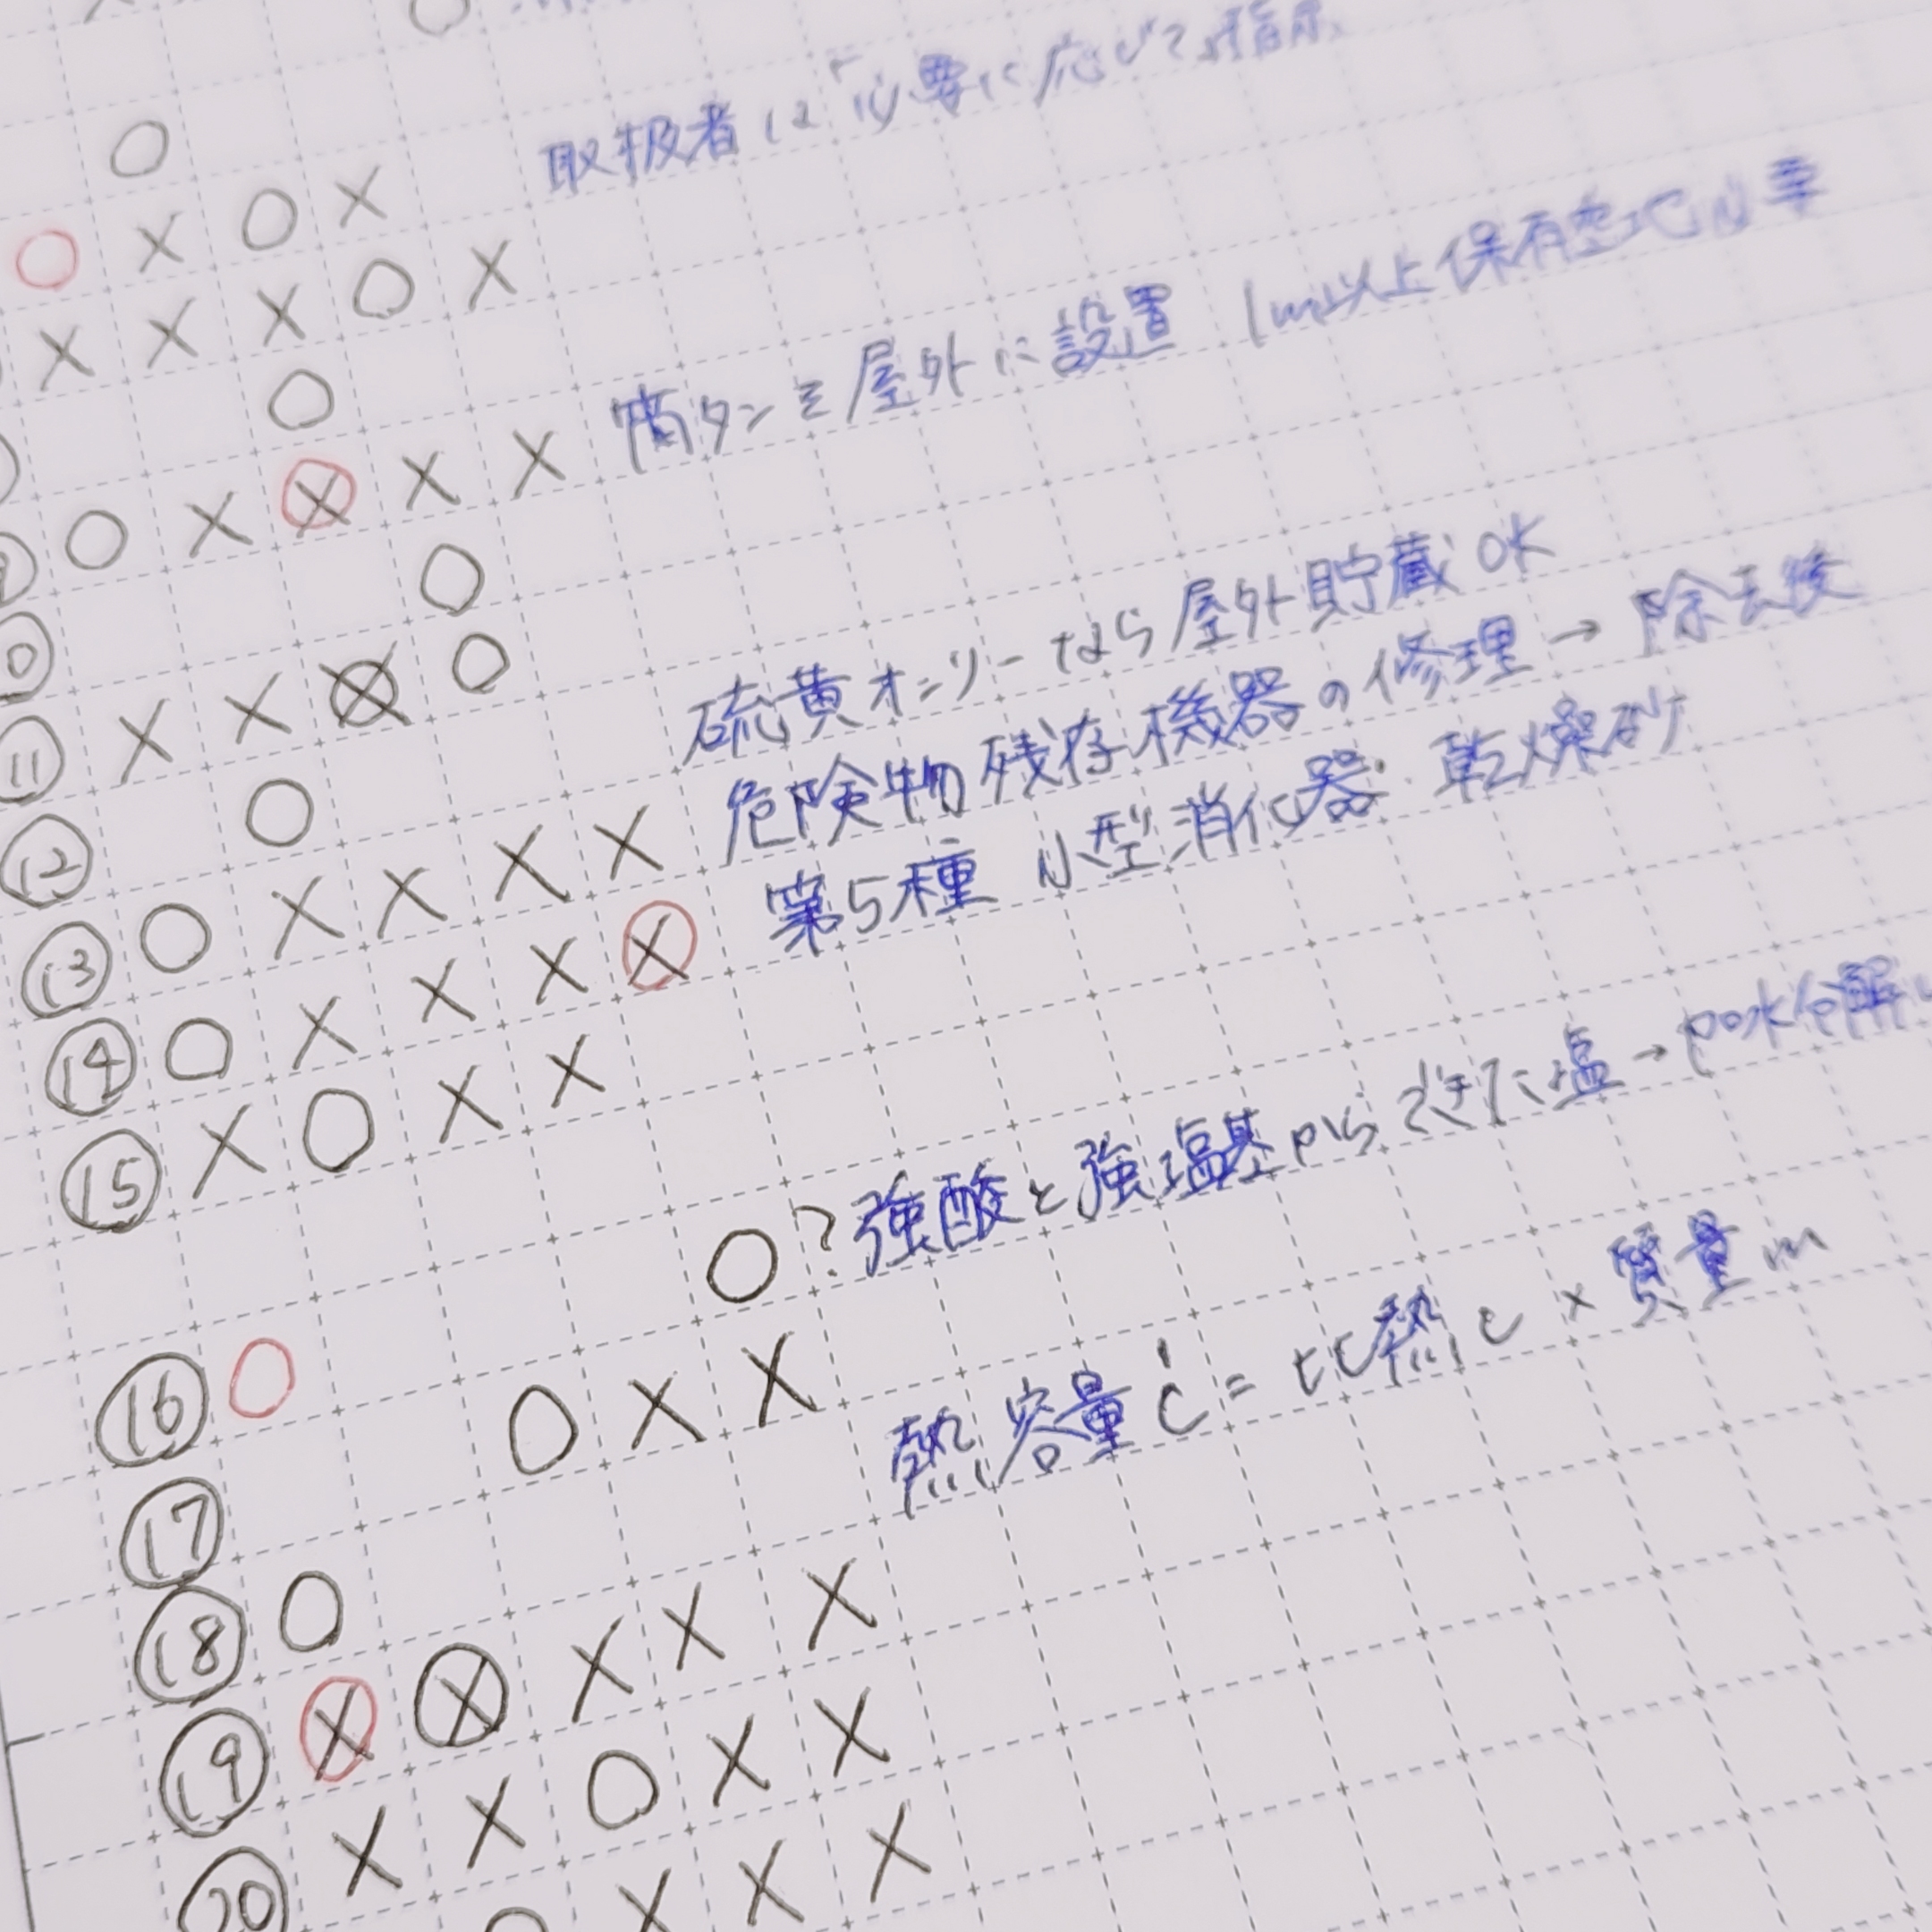 取扱者は「必要に応じて指示
簡タンを屋外に設置 1m以上保有空地必要
硫黄オンリーなら屋外貯蔵OK
危険物残存機器の修理→除去後
第5種 小型消化器 乾燥砂
⑪ × × ○
⑫ ○
⑬ ○ × × × ×
⑭ ○ × × × ×
⑮ × ○ × ×
○?強酸と強塩基からできた塩→加水分解
⑯ ○
⑰ ○ × × 熱容量C=比熱c×質量m
⑱ ○
⑲ × × × × ×
⑳ × × ○ × ×
○ × × ×